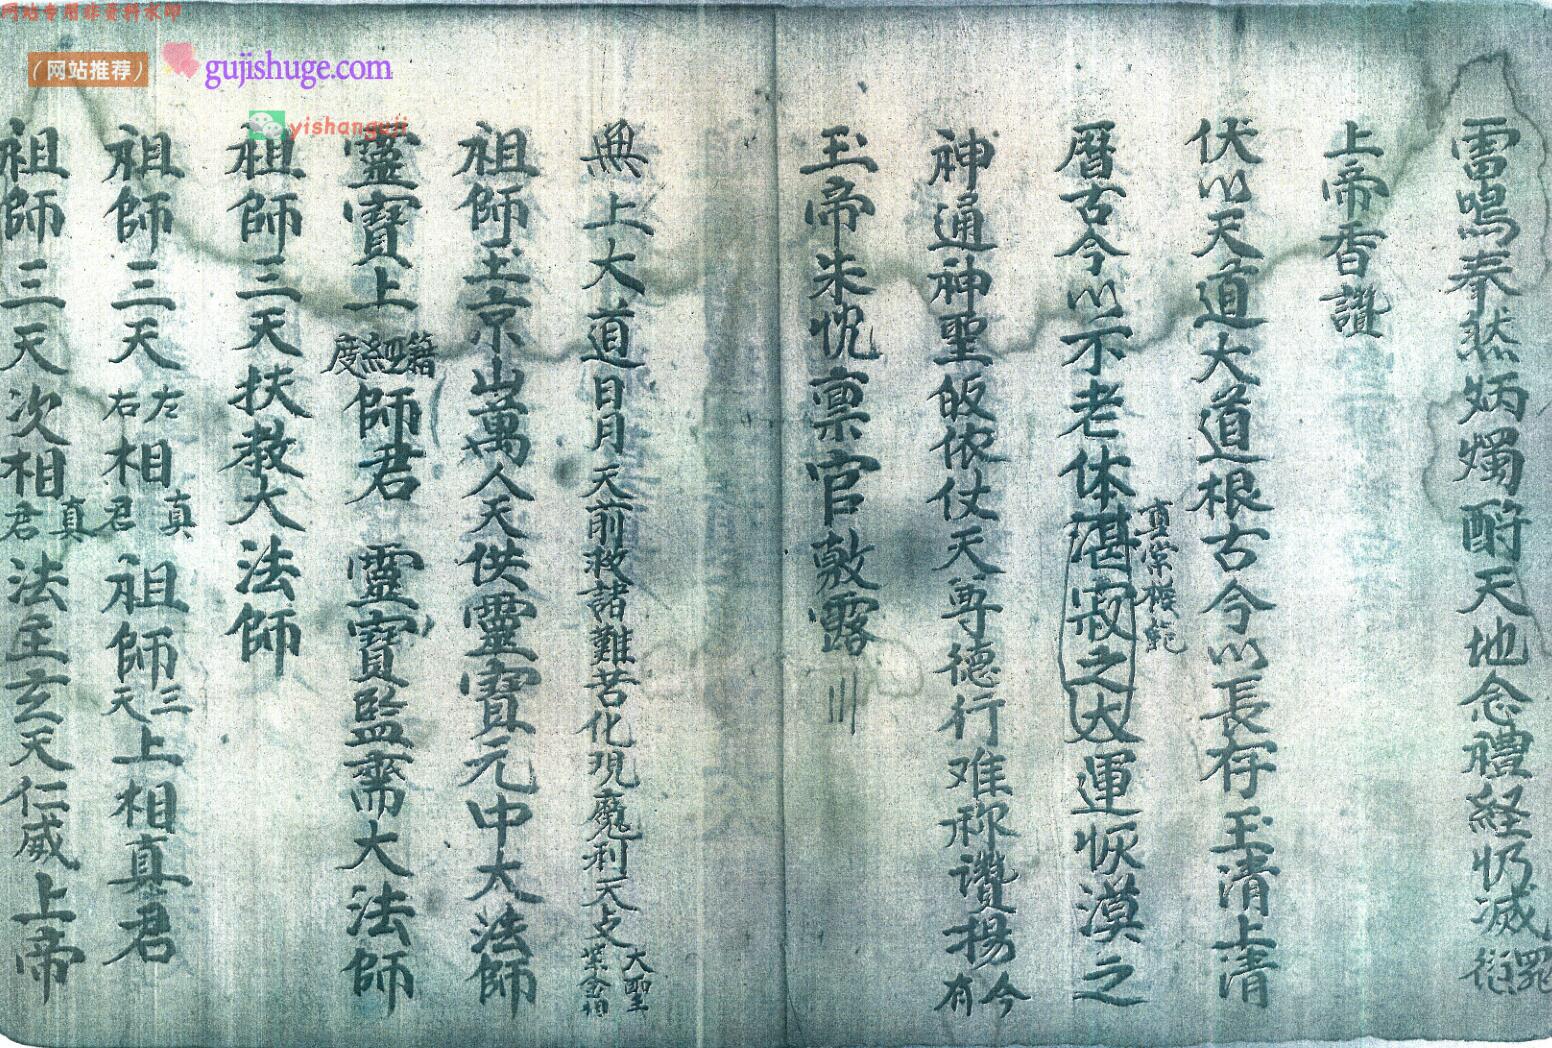 网站专用非资料水印
（网站推荐） gujishuge.com
yishanguji
雷鳴奉然炳燭酧天地念禮経仍滅罪愆
上帝香讚
伏以天道大道根古今以長存玉清上清
曆古今以示老体湛寂之大運恢漠之
神通神聖皈依仗天尊德行难称讚揚今有
玉帝朱忱禀官敷露
無上大道日月天前救諸難苦化現魔利天大聖
祖師玉京山萬人天供靈寶元中大法師
靈寶上籍經度師君 靈寶監齋大法師
祖師三天扶教大法師
祖師三天左右相真君 祖師三天上相真君
祖師三天次相真君法主玄天仁威上帝